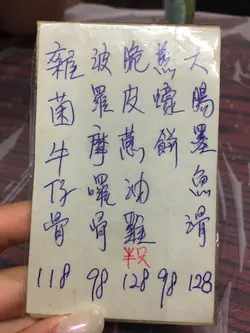 大腸墨魚滑 128
煎蠔餅 98
脆皮蔥油雞 半只 128
波羅摩囉骨 98
雜菌牛仔骨 118